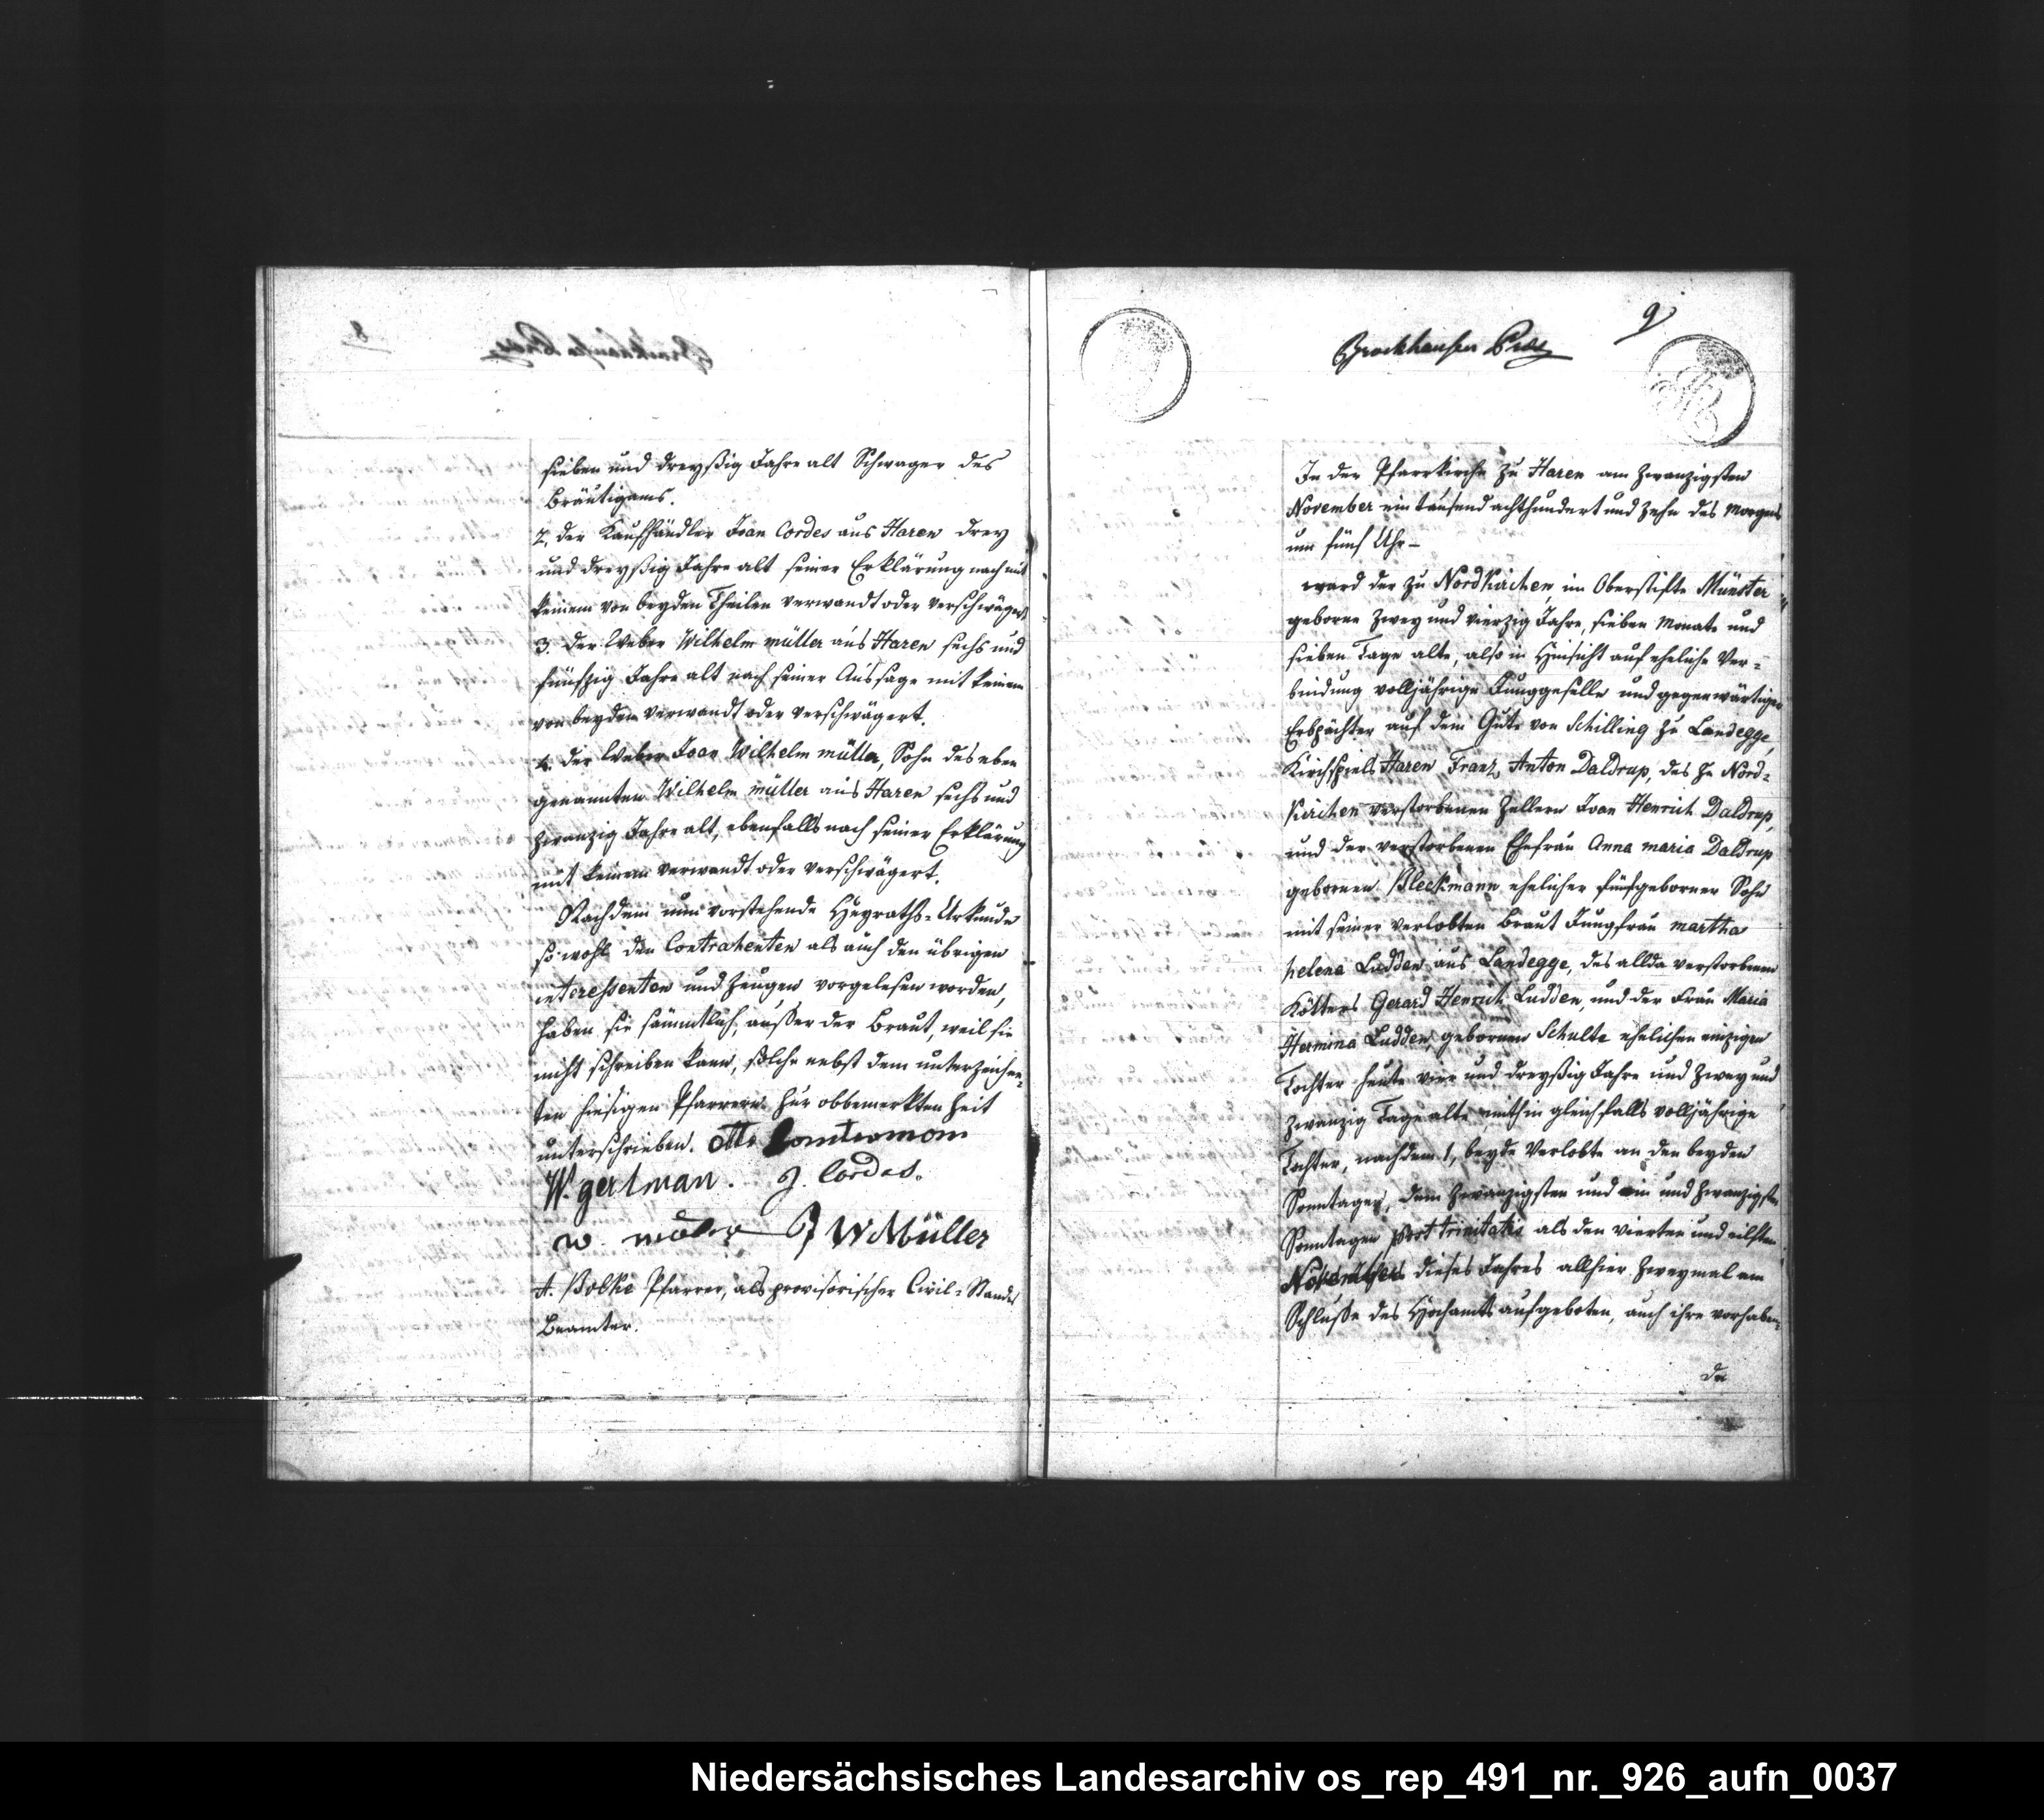 sieben und dreyßig Jahre alt Schwager des
Bräutigams.
2. der Kaufhändler Joan Cordes aus Haren drey
und dreyßig Jahre alt seiner Erklärung nach mit
keinem von beyden Theilen verwandt oder verschwägert
3. der Weber Wilhelm müller aus Haren sechs und
fünfzig Jahre alt nach seiner Aussage mit keinem
von beyden verwandt oder verschwägert.
4. der Weber Joan Wilhelm müller, Sohn des eben
genannten Wilhelm müller aus Haren sechs und
zwanzig Jahre alt, ebenfalls nach seiner Erklärung
mit keinem verwandt oder verschwägert.
Nachdem nun vorstehende Heyraths-Urkunde
so wohl den Contrahenten als auch den übrigen
interessenten und Zeugen vorgelesen worden,
haben sie sämmtlich, ausser der Braut, weil sie
nicht schreiben kann, solche nebst dem unterzeichne-
ten hiesigen Pfarrern zur obbemerkten Zeit
unterschrieben.
W. gerlman. J. Cordes.
w. müler J W Müller
A. Bolke Pfarrer, als provisorischer Civil-Standes
Beamter.
9
Brockhausen Pres
In der Pfarrkirche zu Haren am zwanzigsten
November ein tausend achthundert und zehn des Morgens
um fünf Uhr-
ward der zu Nordkirchen, im Oberstifte Münster
geborne zwey und vierzig Jahre, sieben Monate und
sieben Tage alte, also in Hinsicht auf eheliche Ver-
bindung volljährige Junggeselle und gegenwärtiger
Erbpächter auf dem Gute von Schilling zu Landegge,
Kirchspiels Haren, Franz Anton Daldrup, des zu Nord-
kirchen verstorbenen Zellern Joan Henrich Daldrup,
und der verstorbenen Ehefrau Anna maria Daldrup
gebornen Bleckmann ehelicher fünfgeborner Sohn
mit seiner verlobten Braut Jungfrau martha
helena Ludden aus Landegge, des allda verstorbenen
Kötters Gerard Henrich Ludden, und der Frau Maria
Hermina Ludden, gebornen Schulte ehelichen einzigen
Tochter heute vier und dreyßig Jahre und zwey und
zwanzig Tage alte mithin gleichfalls volljährige
Tochter, nachdem 1, beyde Verlobte an den beyden
Sonntagen, dem zwanzigsten und ein und zwanzigsten
Sonntagen post trinitatis als den vierten und eilften
November dieses Jahres allhier zweymal am
Schlusse des Hochamts aufgeboten, auch ihre vorhaben-
de
Niedersächsisches Landesarchiv os_rep_491_nr._926_aufn_0037